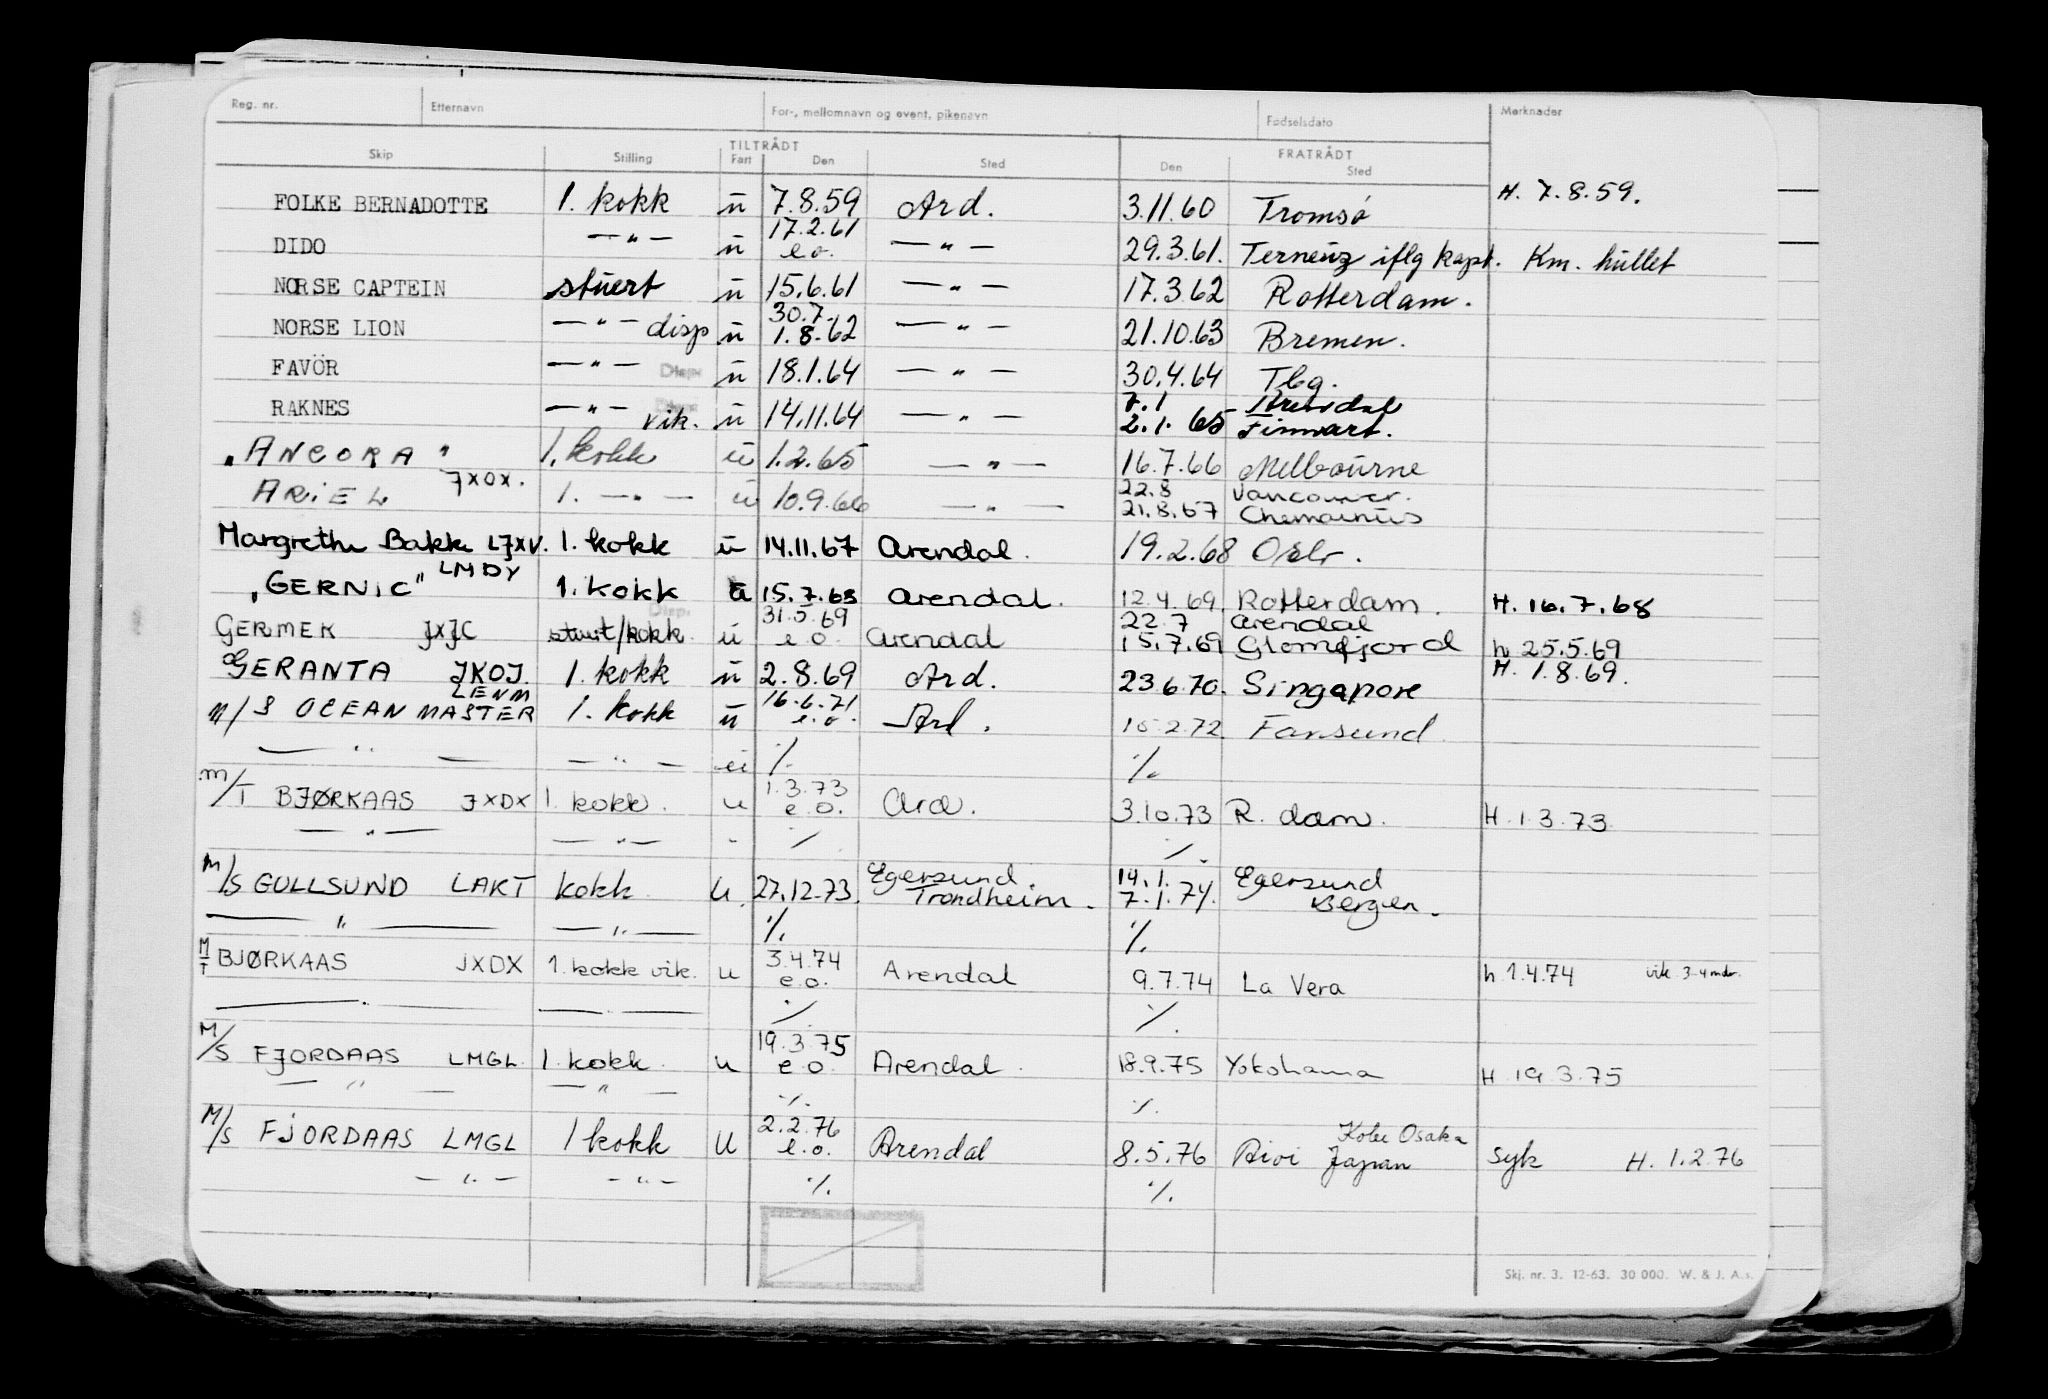 Reg. nr. Etternavn For-, mellomnavn og event, pikenavn Fødselsdato Merknader
TILTRÅDT FRATRÅDT
Skip Stilling Fart Den Sted Den Sted
FOLKE BERNADOTTE 1. kokk u 7.8.59 Ard. 3.11.60 Tromsø H. 7.8.59.
DIDO —"— u 17.2.61 e.o. —"— 29.3.61. Terneuz iflg kapt. Km. hullet
NORSE CAPTEIN stuert u 15.6.61 —"— 17.3.62 Rotterdam.
NORSE LION —"— disp u 30.7. 1.8.62 —"— 21.10.63 Bremen.
FAVÖR —"— Disp. u 18.1.64 —"— 30.4.64 Tbg.
RAKNES —"— vik. u 14.11.64 —"— 7.1 2.1. 65 Arendal Finnart.
"ANCORA" 1. kokk u 1.2.65 —"— 16.7.66 Melbourne
ARIEL JXOX. 1. —"— u 10.9.66 —"— 22.8 21.8.67 Vancouver. Chemainus
Margrethe Bakke LJXV. 1. kokk u 14.11.67 Arendal. 19.2.68 Oslo.
"GERNIC" LMDY 1. kokk u 15.7.68 Arendal. 12.4.69. Rotterdam. H. 16.7.68
GERMEK JXJC stuert/kokk Disp. u 31.5.69 e.o. Arendal 22.7 15.7.69 Arendal Glomfjord h 25.5.69
GERANTA JKOJ. 1. kokk u 2.8.69 Ard. 23.6.70. Singapore H. 1.8.69.
M/S OCEAN MASTER LENM 1. kokk u 16.6.71 e.o. Ard. 15.2.72 Farsund
—"— —"— u ./. ./.
M/T BJØRKAAS JXDX 1. kokk. u 1.3.73 e.o. Ard. 3.10.73 R.dam. H. 1.3.73
—"— —"— - ./. ./.
M/S GULLSUND LAKT kokk u. 27.12.73. Egersund. Trondheim. 14.1. 7.1.74. Egersund Bergen.
—"— —"— ./. ./.
M/T BJØRKAAS JXDX 1. kokk vik. u 3.4.74 e.o. Arendal 9.7.74 La Vera h 1.4.74 vik. 3-4 mdr.
—.— —.— ./. ./.
M/S FJORDAAS LMGL. 1. kokk. u 19.3.75 e.o. Arendal. 18.9.75 Yokohama H 19.3.75
—"— —"— ./. ./.
M/S FJORDAAS LMGL 1 kokk U 2.2.76 e.o. Arendal 8.5.76 Aioi Japan Kobe Osaka syk H. 1.2.76
—"— —"— ./. ./.
Skj. nr. 3. 12-63. 30 000. W. & J. A.s.